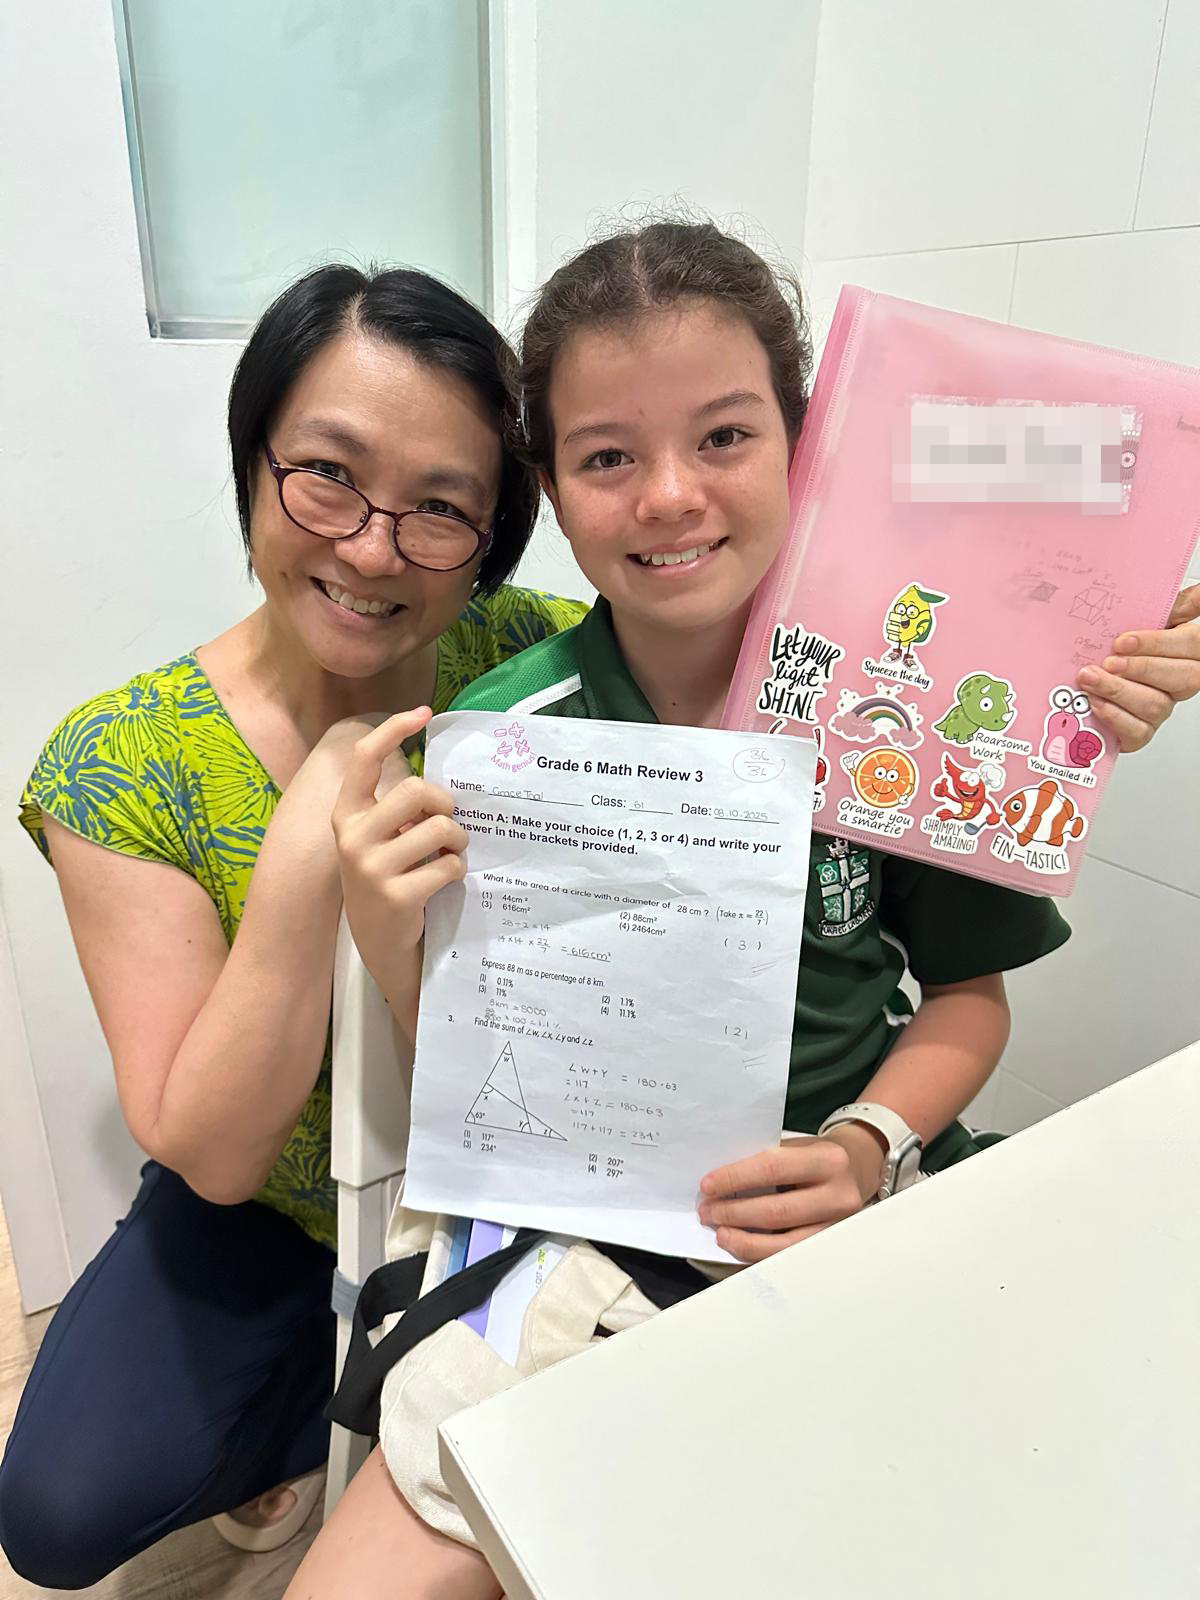 Math genius
36
36
Grade 6 Math Review 3
Name: Grace Toal Class: 61 Date: 09.10.2025
Section A: Make your choice (1, 2, 3 or 4) and write your
answer in the brackets provided.
What is the area of a circle with a diameter of 28 cm? (Take π = 22/7)
(1) 44cm² (2) 88cm²
(3) 616cm² (4) 2464cm²
28 ÷ 2 = 14
14 × 14 × 22/7 = 616cm²
( 3 )
2. Express 88 m as a percentage of 8 km.
(1) 0.11% (2) 1.1%
(3) 11% (4) 11.1%
8km = 8000
× 100 = 1.1%
( 2 )
3. Find the sum of ∠w, ∠x, ∠y and ∠z
w
x
63°
y
z
∠ W + Y = 180-63
= 117
∠ x + z = 180-63
= 117
117 + 117 = 234°
(1) 117° (2) 207°
(3) 234° (4) 297°
Squeeze the day
Let YOUR
light
SHINE
Roarsome
Work
You snailed it!
Orange you
a smartie
SHRIMPLY
AMAZING!
FIN-TASTIC!